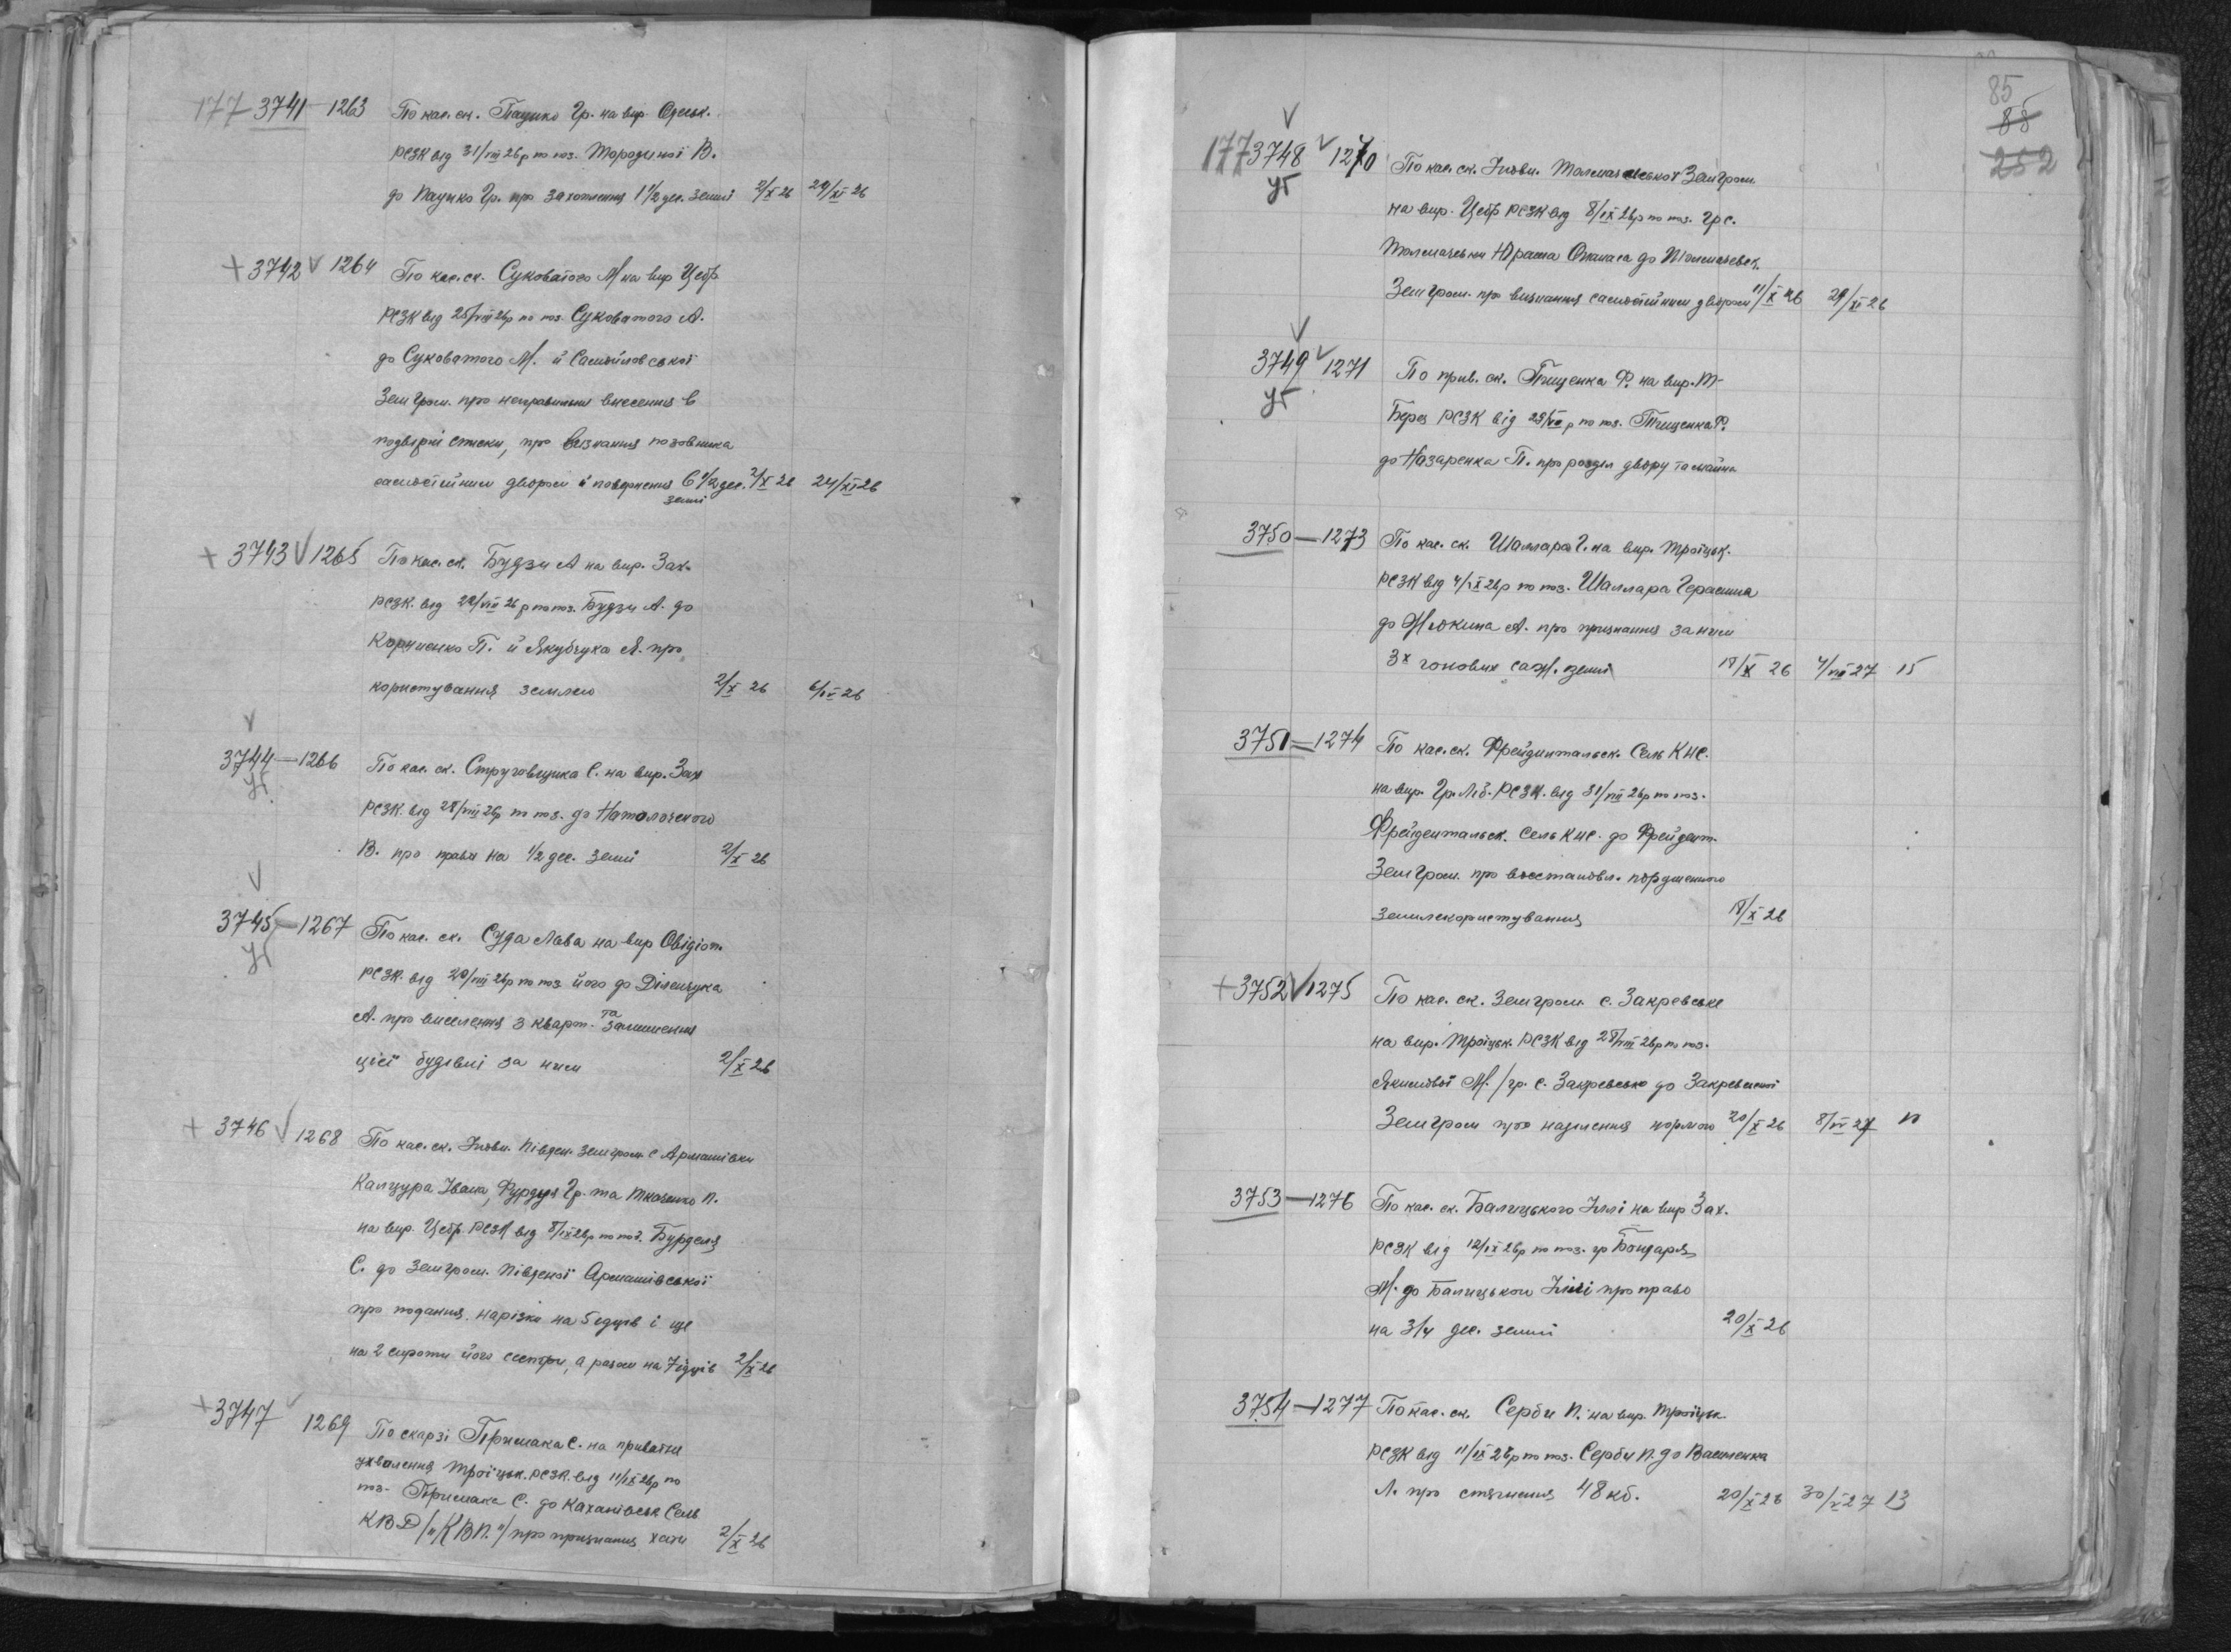 177 3741 — 1263 По кас. ск. Пацико Гр. на вир. Одеськ.
РСЗК від 31/VIII 26 р по поз. Мородиної В.
до Пацико Гр. про захоплення 1 1/2 дес. землі 2/X 26 24/XI 26
+ 3742 V 1264 По кас. ск. Суковатого М на вир Цебр
РСЗК від 25/VIII 26р по поз. Суковатого А.
до Суковатого М. й Самойловської
Зем Гром. про неправильне внесення в
подвірні списки, про визнання позовника
самостійним двором й повернення 6 1/2 дес. 2/X 26 24/XI 26
землі
+ 3743 V 1265 По кас. ск. Будзи А на вир. Зах.
РСЗК. від 22/VIII 26 р по поз. Будзи А. до
Корниенко П. й Якубчука Я. про
користування землею 2/X 26 6/IV 26
V
3744 — 1266 По кас. ск. Струговщика С. на вир. Зах
РСЗК. від 28/VIII 26р по поз. до Натолочного
В. про право на 1/2 дес. землі 2/X 26
V
3745 — 1267 По кас. ск. Суда Лава на вир Овідіоп.
РСЗК. від 20/VIII 26р по поз його до Діленчука
А. про виселення з кварт. та залишення
цієї будівлі за ним 2/X 26
+ 3746 V 1268 По кас. ск. Уповн. Півден. земгром. с Армашівки
Калцура Івана, Фурдуя Гр. та Ткаченко П.
на вир. Цебр. РСЗК від 8/IX 26р по поз. Бурделя
С. до Земгром. Південої Армашівської
про подання нарізки на 5 едців і ще
на 2 сироти його сестри, а разом на 7 їдців 2/X 26
+ 3747 V 1269 По скарзі Примака С. на приватни
ухвалення Троїцьк. РСЗК. від 11/IX 26р по
поз. Примака С. до Каханівськ Сель
КВД /"КВП."/ про признання хати 2/X 26
85
88
252
V
177 3748 V 1270 По кас. ск. Уповн. Толмачевської Земгром.
на вир. Цебр РСЗК від 8/IX 26р по поз. гр с.
Толмачевки Юраша Опанаса до Толмачевськ.
Зем Гром. про визнання самостійним двором 11/X 26 29/XI 26
V
3749 V 1271 По прив. ск. Тищенка Ф. на вир. М-
Берез РСЗК від 25/VIII р по поз. Тищенка Ф.
до Назаренка П. про розділ двору та майна
3750 — 1273 По кас. ск. Шаллара Г. на вир. Троїцьк.
РСЗК від 4/IX 26р по поз. Шаллара Герасима
до Жюкина А. про признання за ним
3х гонових саж. землі 18/X 26 4/VII 27 15
3751 = 1274 По кас. ск. Фрейдентальск. Сель КНС.
на вир. Гр. Ліб. РСЗК. від 31/VIII 26р по поз.
Фрейдентальск. Сель КНС. до Фрейдент.
Зем Гром. про восстановл. порушенного
землекористування 18/X 26
+ 3752 V 1275 По кас. ск. Земгром. с. Закревське
на вир. Троїцьк. РСЗК від 28/VIII 26р по поз.
Якимової М. / гр. с. Закревсько до Закревської
Зем гром про наділення нормою 20/X 26 8/VI 27 п
3753 — 1276 По кас. ск. Балицького Іллі на вир Зах.
РСЗК від 12/IX 26р по поз. гр Бондаря
М. до Балицького Іллі про право
на 3/4 дес. землі 20/X 26
3754 — 1277 По кас. ск. Серби П. на вир. Троїцьк.
РСЗК від 11/IX 26р по поз. Серби П. до Василенка
Л. про стягнення 48 кб. 20/X 26 30/V 27 13